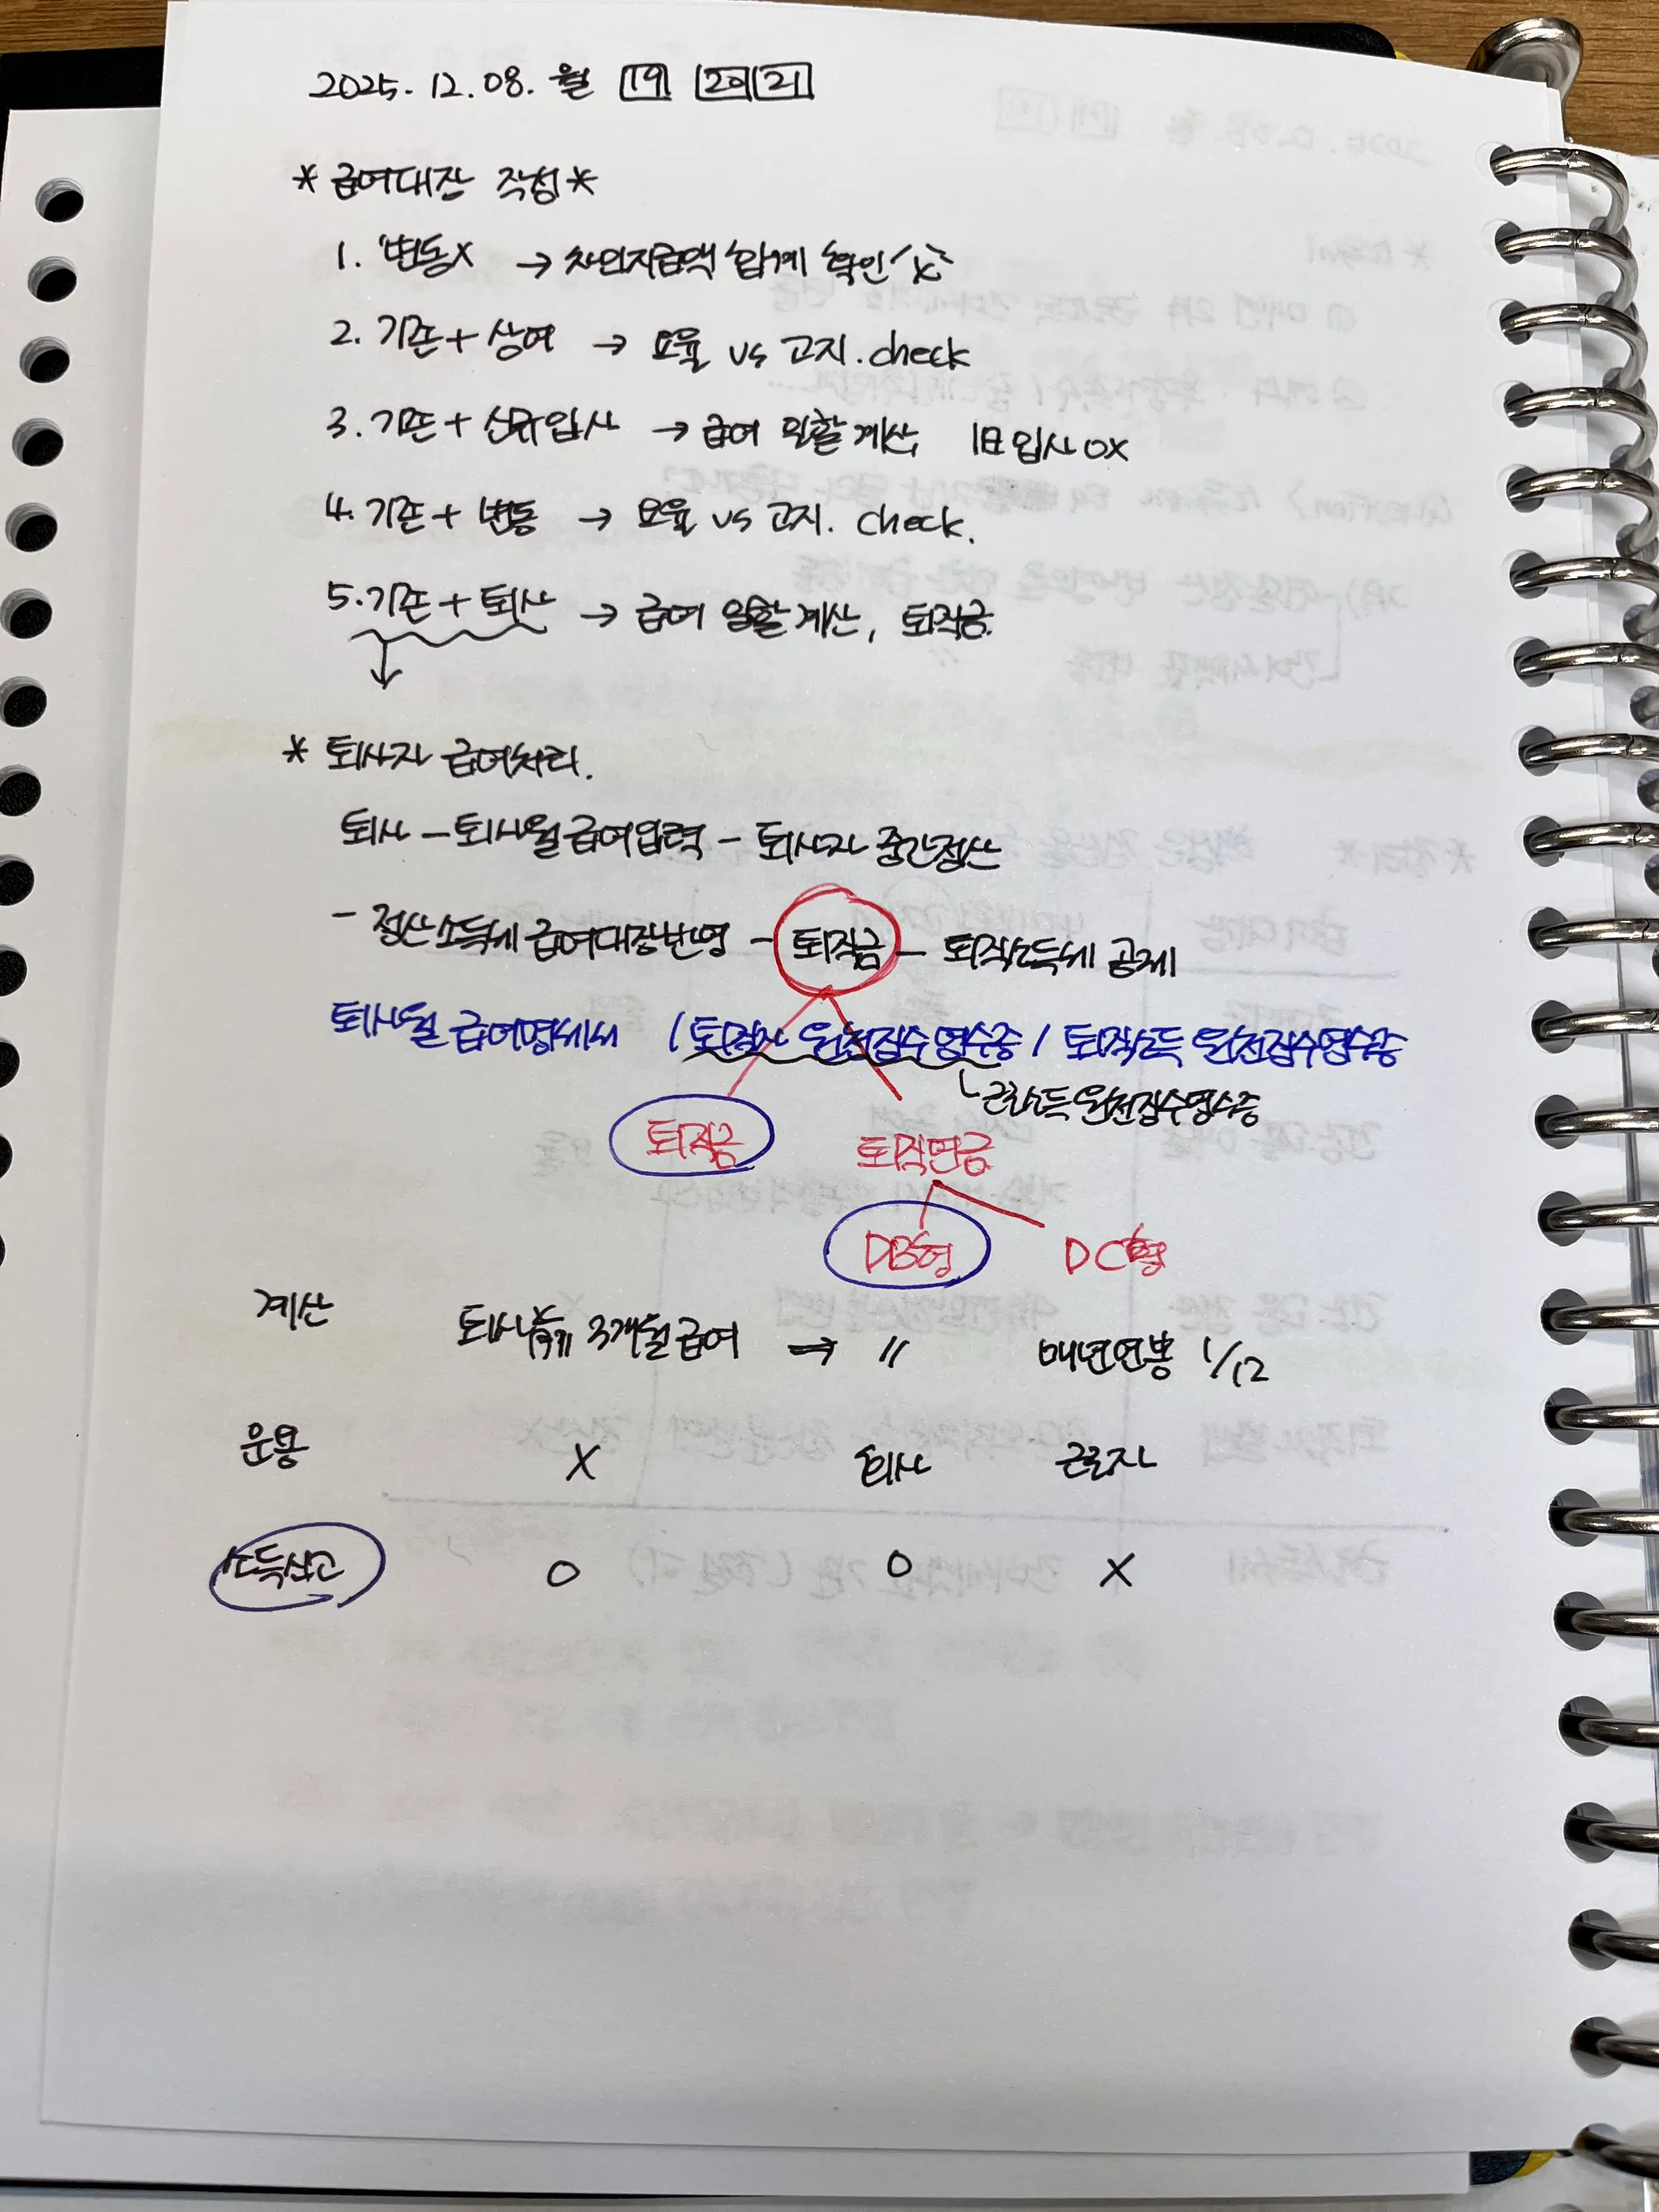 2025. 12. 08. 월 19 20 21
* 급여대장 작성 *
1. 변동X → 차인지급액 합계 확인
2. 기존 + 상여 → 요율 vs 고지. check
3. 기존 + 신규입사 → 급여 일할계산, 1日 입사 OX
4. 기존 + 변동 → 요율 vs 고지. check.
5. 기존 + 퇴사 → 급여 일할계산, 퇴직금.
↓
* 퇴사자 급여처리.
퇴사 - 퇴사월 급여입력 - 퇴사자 중간정산
- 정산소득세 급여대장반영 - 퇴직금 - 퇴직소득세 공제
퇴사월 급여명세서 / 퇴직자 원천징수영수증 / 퇴직소득 원천징수영수증
ㄴ근로소득 원천징수영수증
퇴직금 퇴직연금
DB형 DC형
계산 퇴사 3개월 급여 ⇒ 〃 매년연봉 1/12
운용 X 회사 근로자
소득신고 O O X